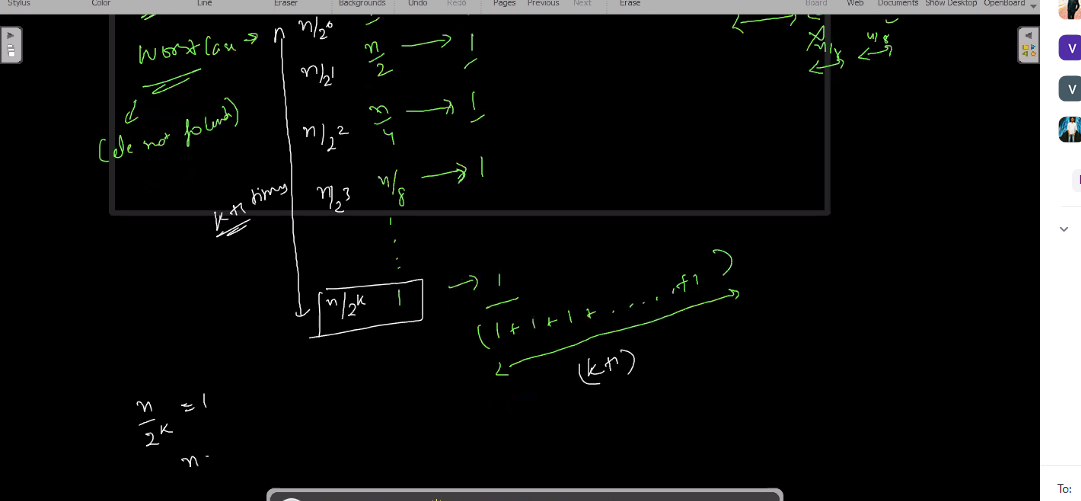 Styles Color Line Eraser Backgrounds Undo Redo Pages Previous Next Erase Board Web Documents Show Desktop OpenBoard
Worst Case → n n/2⁰
n/2 → 1
n/2¹
(ele not found)
n/4 → 1
n/2²
n/8 → 1
n/2³
k+1 times
n/2ᵏ 1 → 1
(1 + 1 + 1 + ..... +1)
(k+1)
n/2ᵏ = 1
n
n/8 n/8
V
V
To: